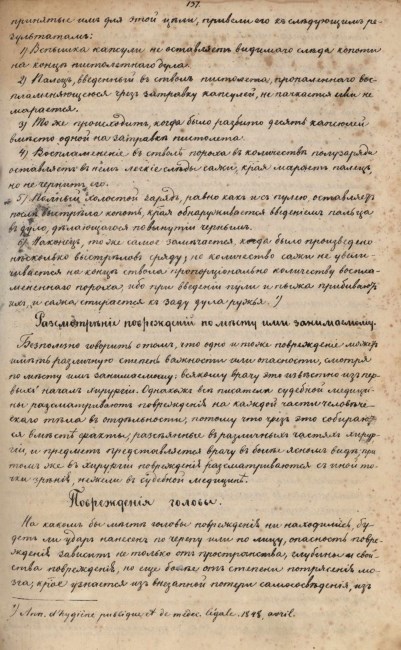 137.
принятые имъ для этой цѣли, привели его къ слѣдующимъ ре-
зультатамъ:
1) Вспышка капсули не оставляетъ видимаго слѣда копоти
на концѣ пистолетнаго дула.
2) Палецъ, введенный въ стволъ пистолета, пропаленнаго вос-
пламеняющеюся чрезъ затравку капсулей, не пачкается и не
марается.
3) Тоже происходитъ, когда было разбито десять капсюлей
вмѣсто одной на затравкѣ пистолета.
4) Воспламененіе въ стволѣ пороха въ количествѣ полузаряда
оставляетъ въ немъ легкіе слѣды сажи, края мараетъ палецъ,
но не чернитъ его.
5) Полный холостой зарядъ, равно какъ и съ пулею, оставляетъ
послѣ выстрѣла копоть, края обнаруживается введеніемъ пальца
въ дуло, дѣлающагося совершенно чернымъ.
6) Наконецъ, тоже самое замѣчается, когда было произведено
нѣсколько выстрѣловъ сряду; но количество сажи не увели-
чивается на концѣ ствола пропорціонально количеству воспла-
мененнаго пороха, ибо при введеніи пули и пыжа прибиваютъ
ихъ, и сажа стирается къ заду дула ружья. *)
Разсмотрѣніе поврежденій по мѣсту ими занимаемому.
Безполезно говорить о томъ, что одно и тоже поврежденіе можетъ
имѣть различную степень важности или опасности, смотря
по мѣсту имъ занимаемому: всякому врачу это извѣстно изъ пер-
выхъ началъ хирургіи. Однакоже всѣ писатели судебной медици-
ны разсматриваютъ поврежденія на каждой части человѣче-
скаго тѣла въ отдѣльности; потому что чрезъ это собирают-
ся вмѣстѣ факты, разсѣянные въ различныхъ частяхъ хирур-
гіи, и предметъ представляется врачу въ болѣе ясномъ видѣ; при
томъ же въ хирургіи поврежденія разсматриваются съ иной то-
чки зрѣнія, нежели въ судебной медицинѣ.
Поврежденія головы.
На какомъ бы мѣстѣ головы поврежденія ни находились, бу-
детъ ли ударъ нанесенъ по черепу или по лицу, опасность повре-
жденія зависитъ не только отъ пространства, глубины и свой-
ства поврежденія, но еще болѣе отъ степени потрясенія мо-
зга; крое узнается изъ внезапной потери самосознанія, изъ
*) Ann. d'hygiène publique et de médec. légale. 1848, avril.